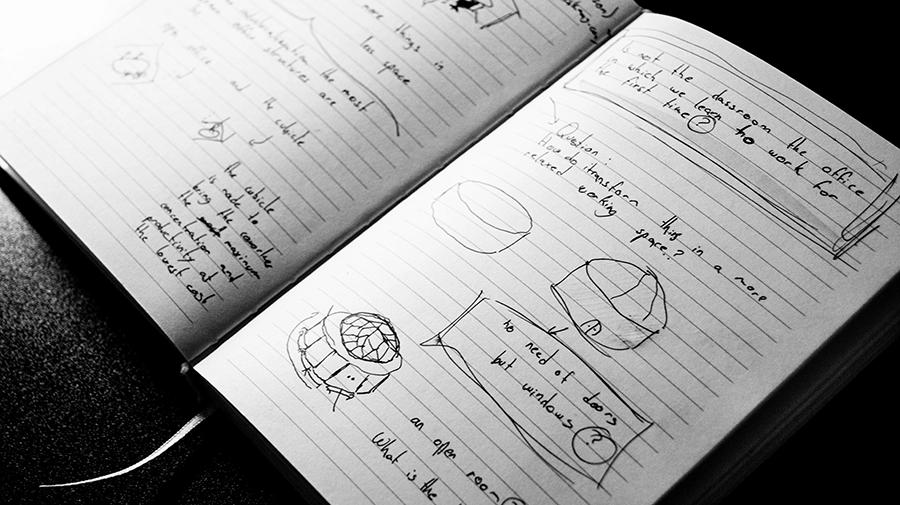 more things in
less space
the most
office structures are
office and the cubicle
the cubicle
is made to
bring the coworker
the maximum
concentration and
productivity at
the lowest cost
Is not the classroom the office
in which we learn to work for
the first time?
Question:
How do i transform this in a more
relaxed working
space..?
no need of doors
but windows ?
an open room
What is the